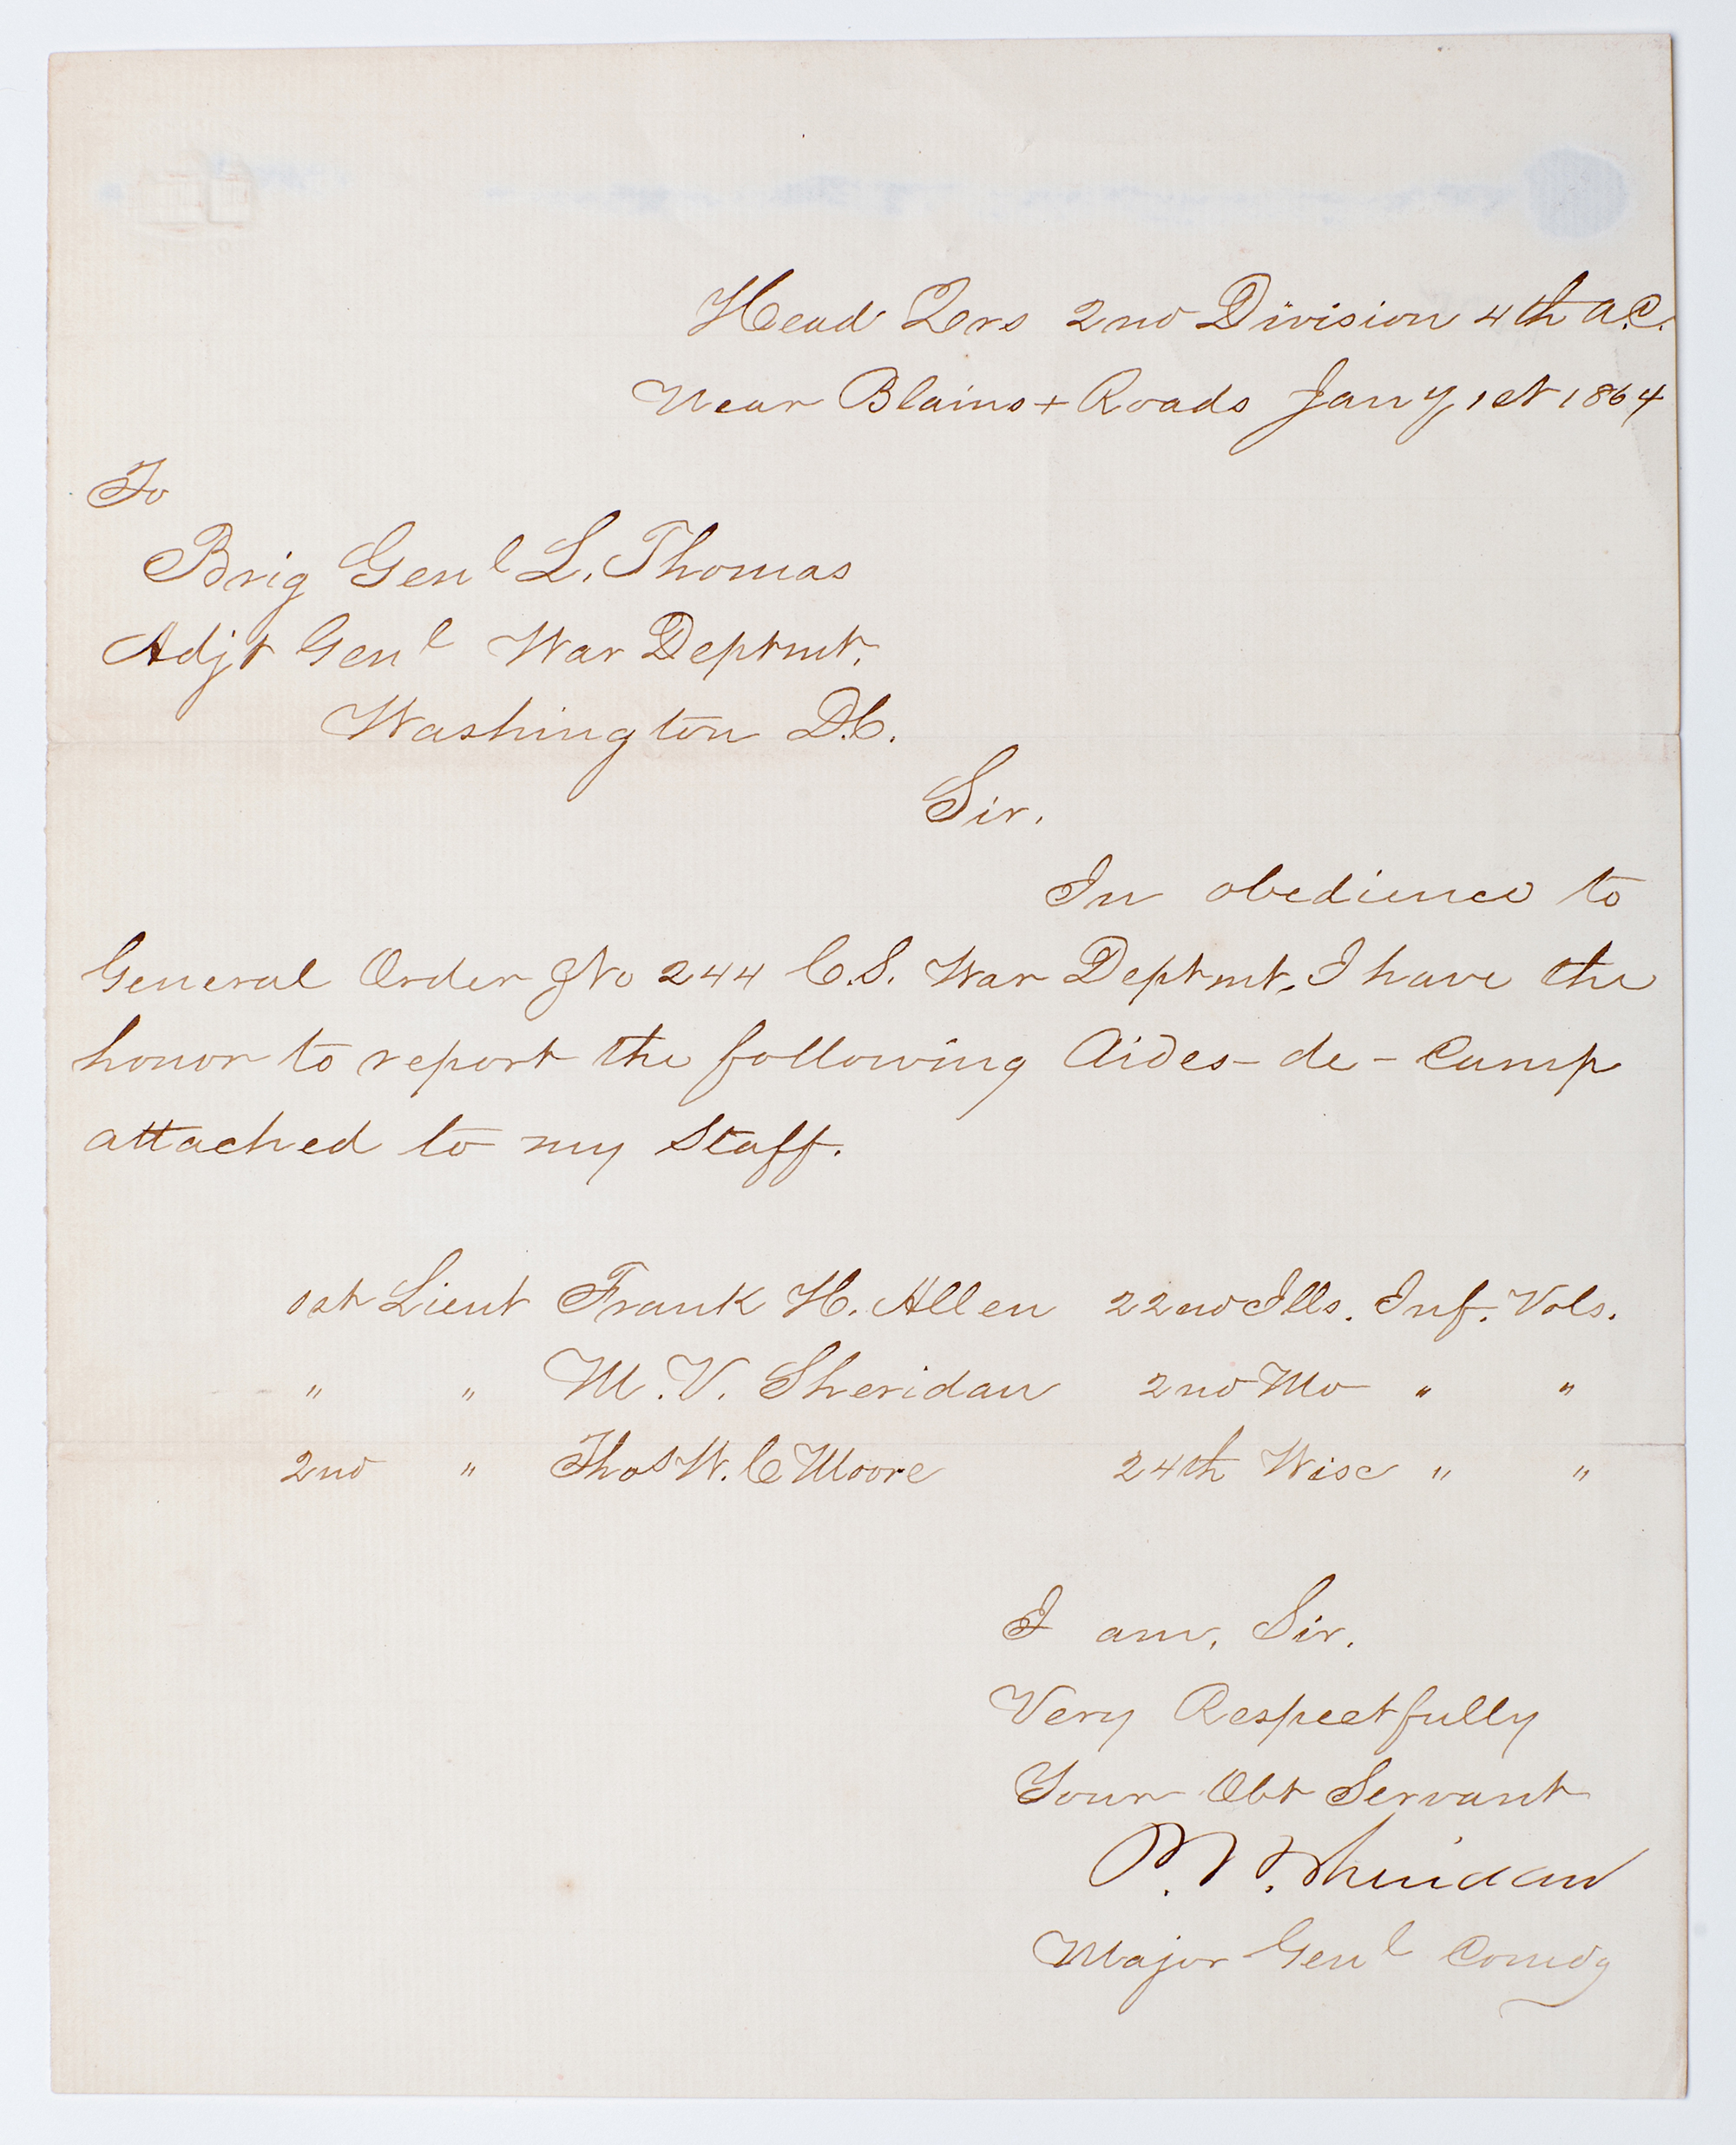 Head Qrs 2nd Division 4th A.C.
Near Blains + Roads Jany 1st 1864
To
Brig Genl L. Thomas
Adjt Genl War Deptmt.
Washington D.C.
Sir.
In obedience to
General Order No 244 C.S. War Deptmt, I have the
honor to report the following Aides-de-Camp
attached to my Staff.
1st Lieut Frank H. Allen 22nd Ills. Inf. Vols.
" " M.V. Sheridan 2nd Mo " "
2nd " Thos W. C Moore 24th Wisc " "
I am, Sir.
Very Respectfully
Your Obt Servant
P. H. Sheridan
Major Genl Comdg